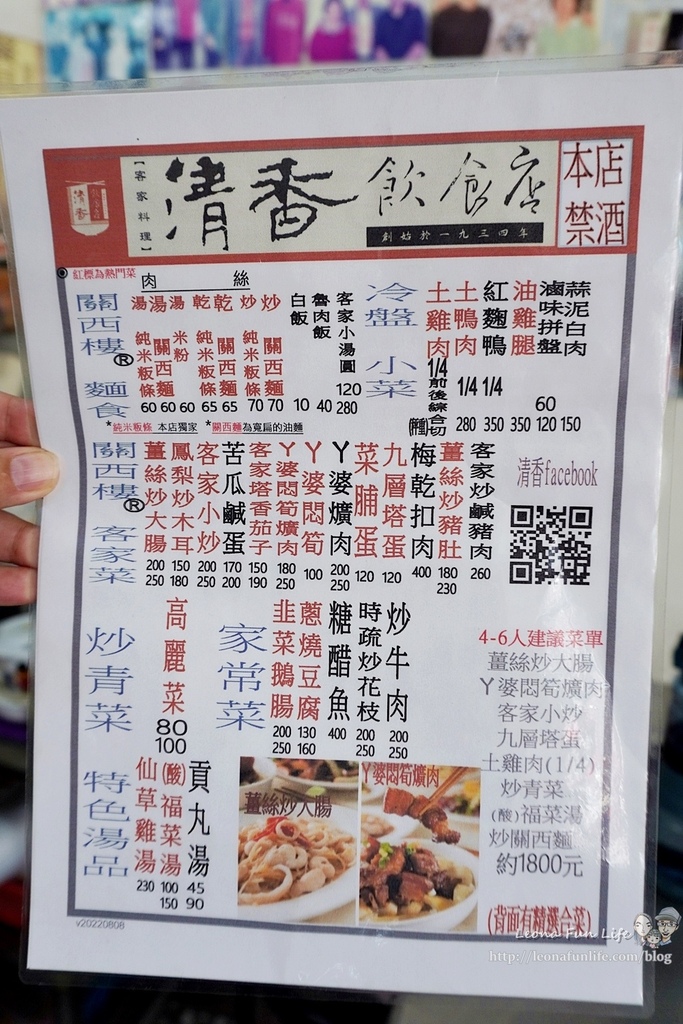 【客家料理】
清香飲食店
創始於一九三四年
本店
禁酒
清香
紅標為熱門菜
關西樓® 麵食
肉絲
湯 純米粄條 60
湯 關西麵 60
湯 米粉 60
乾 純米粄條 65
乾 關西麵 65
炒 純米粄條 70
炒 關西麵 70
白飯 10
魯肉飯 40
客家小湯圓 120 280
*純米粄條 本店獨家 *關西麵為寬扁的油麵
冷盤 小菜
土雞肉 1/4 前後綜合切
土鴨肉 1/4 280
紅麴鴨 1/4 350
油雞腿 350
滷味拼盤 60 120
蒜泥白肉 150
關西樓® 客家菜
薑絲炒大腸 200 250
鳳梨炒木耳 150 180
客家小炒 200 250
苦瓜鹹蛋 170 200
客家塔香茄子 150 190
ㄚ婆悶筍爌肉 180 250
ㄚ婆悶筍 100
ㄚ婆爌肉 200 250
菜脯蛋 120
九層塔蛋 120
梅乾扣肉 400
薑絲炒豬肚 180 230
客家炒鹹豬肉 260
清香facebook
炒青菜
高麗菜 80 100
家常菜
韭菜鵝腸 200 250
蔥燒豆腐 130 160
糖醋魚 400
時疏炒花枝 200 250
炒牛肉 200 250
4-6人建議菜單
薑絲炒大腸
ㄚ婆悶筍爌肉
客家小炒
九層塔蛋
土雞肉(1/4)
炒青菜
(酸)福菜湯
炒關西麵
約1800元
特色湯品
仙草雞湯 230
(酸)福菜湯 100 150
貢丸湯 45 90
薑絲炒大腸
ㄚ婆悶筍爌肉
(背面有精選合菜)
v20220808
Leona Fun Life
http://leonafunlife.com/blog